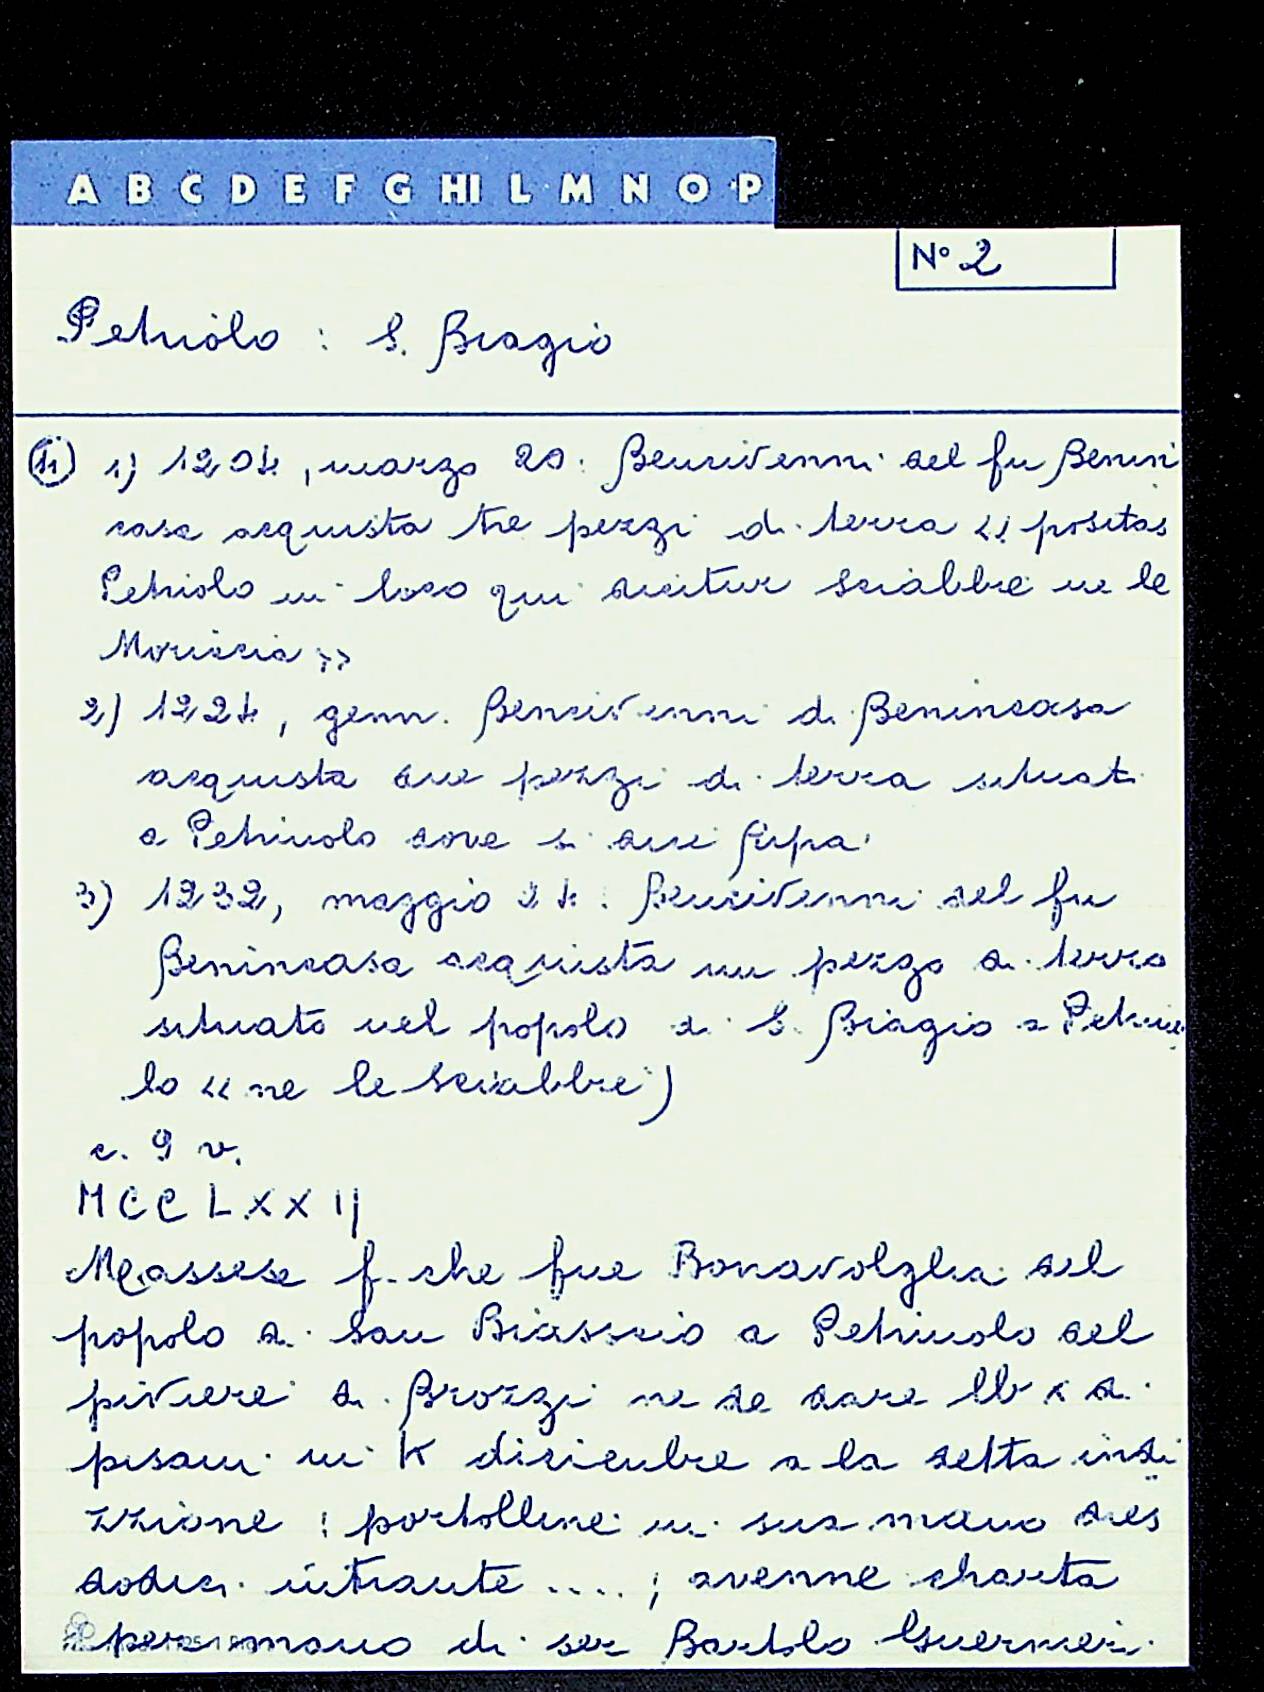 A B C D E F G HI L M N O P
N° 2
Petriolo : S. Biagio
1) 1204, marzo 20: Bencivenni del fu Benin
casa acquista tre pezzi di terra « positas
Petriolo in loco qui dicitur Sciabbie ne le
Moriccia »
2) 1224, genn. Bencivenni di Benincasa
acquista due pezzi di terra situati
a Petriuolo dove si dice
3) 1232, maggio 24: Bencivenni del fu
Benincasa acquista un pezzo di terra
situato nel popolo di S. Biagio a Petriuo
lo « ne le Sciabbie )
c. 9 v.
MCCLXXIJ
Meassese f. che fue Bonavolglia del
popolo di San Biasscio a Petriuolo del
piviere di Brozzi ne de dare lb x di
pisani in K diciembre a la detta indi
zzione : portolline in sua mano dies
dodici intrante .... ; avenne charta
per mano di ser Bartolo Guernieri